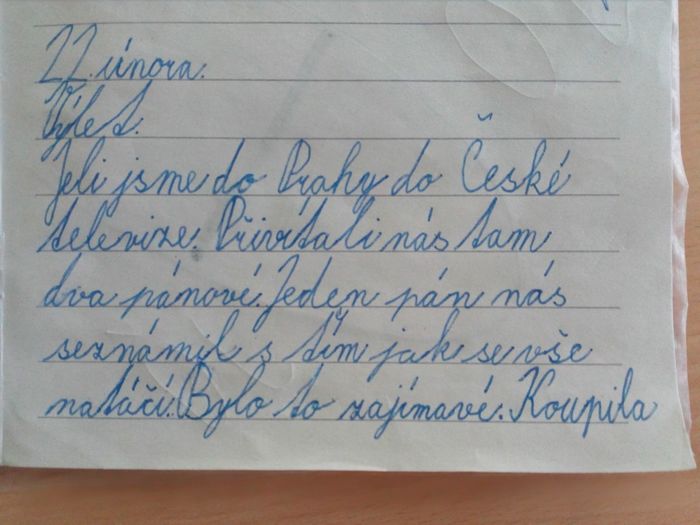 22. února.
Výlet.
Jeli jsme do Prahy do České
televize. Přivítali nás tam
dva pánové. Jeden pán nás
seznámil s tím jak se vše
natáčí. Bylo to zajímavé. Koupila